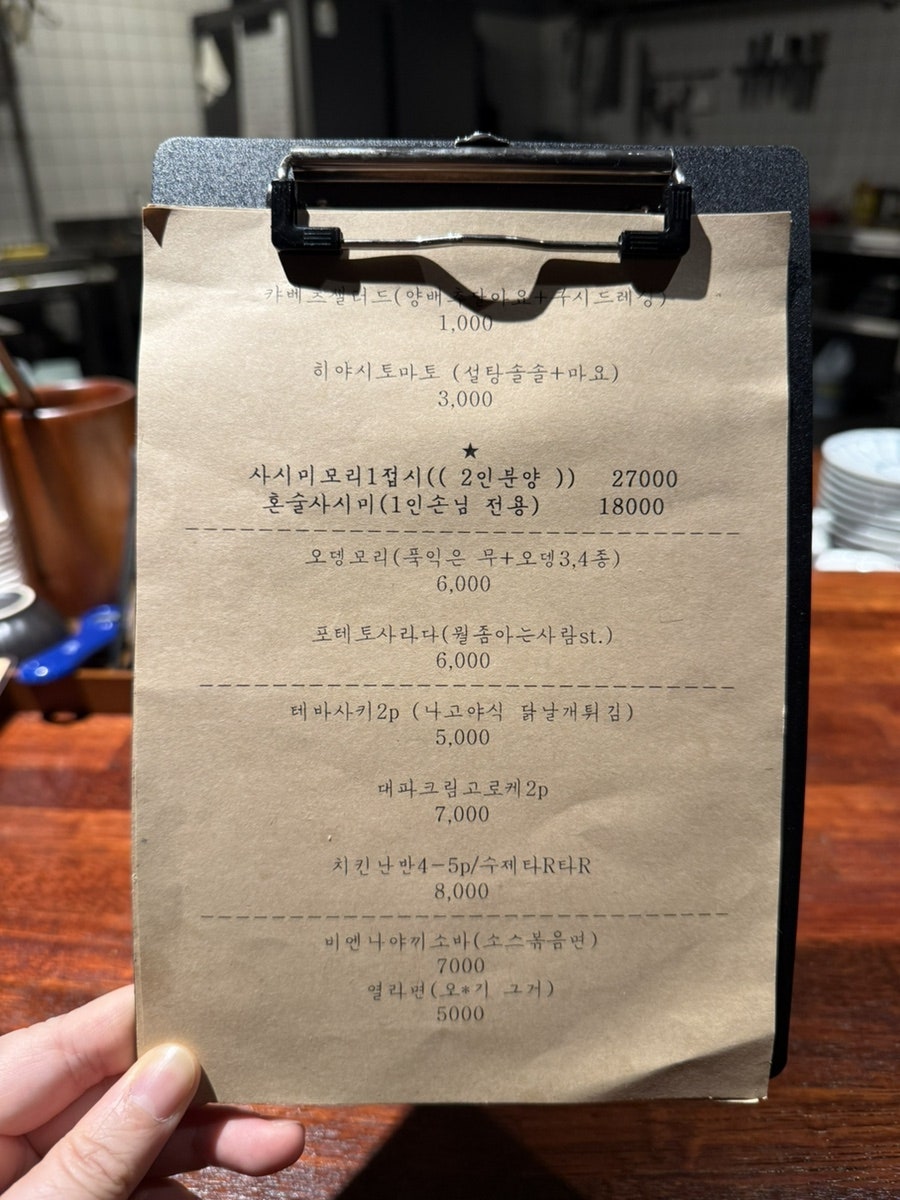 캬베츠샐러드(양배추+마요+쿠시드레싱)
1,000
히야시토마토 (설탕솔솔+마요)
3,000
★
사시미모리1접시(( 2인분양 )) 27000
혼술사시미(1인손님 전용) 18000
오뎅모리(푹익은 무+오뎅3,4종)
6,000
포테토사라다(뭘좀아는사람st.)
6,000
테바사키2p (나고야식 닭날개튀김)
5,000
대파크림고로케2p
7,000
치킨난반4-5p/수제타R타R
8,000
비엔나야끼소바(소스볶음면)
7000
열라면(오*기 그거)
5000